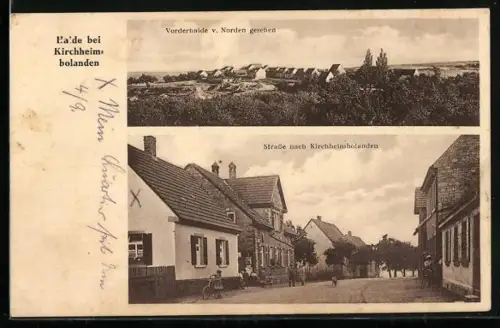 Haide bei
Kirchheim-
bolanden
Vorderhaide v. Norden gesehen
Straße nach Kirchheimbolanden
X Mein
4/9
X